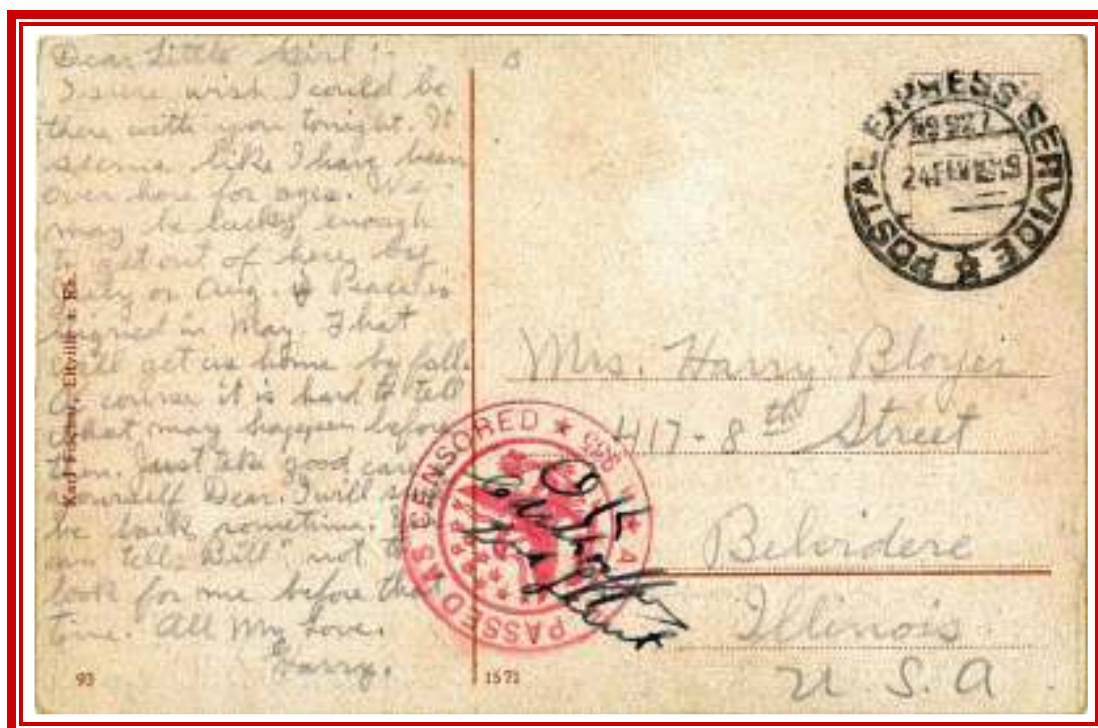 Dear Little Girl:-
I sure wish I could be
there with you tonight. It
seems like I have been
over here for ages. We
may be lucky enough
to get out of here by
July or Aug. if Peace is
signed in May. That
will get us home by fall.
Of course it is hard to tell
what may happen before
then. Just take good care
yourself Dear. I will
be back sometime.
"Tell Bill" not to
look for me before that
time. All My Love.
Harry.
93
Karl Eltville a. Rh.
1572
POSTAL EXPRESS SERVICE
No 927
24 FEV 1919
Mrs. Harry Bloyer
417-8th Street
Belvidere
Illinois
U.S.A.
PASSED AS CENSORED
OK